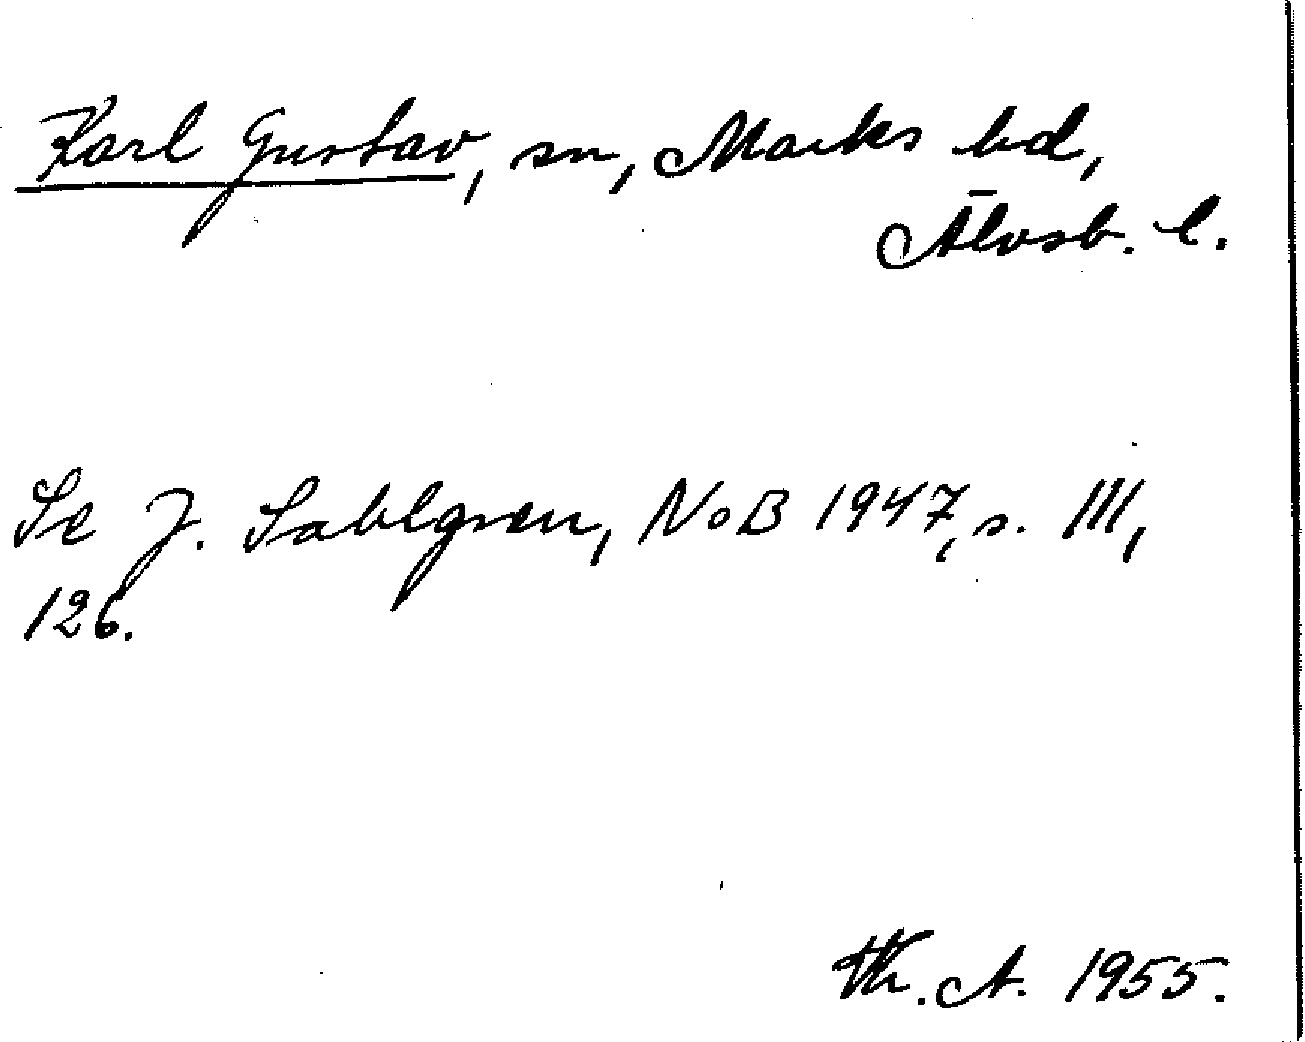 Karl Gustav, sn, Marks hd,
Älvsb. l.
Se J. Sahlgren, NoB 1947, s. 111,
126.
Th. A. 1955.